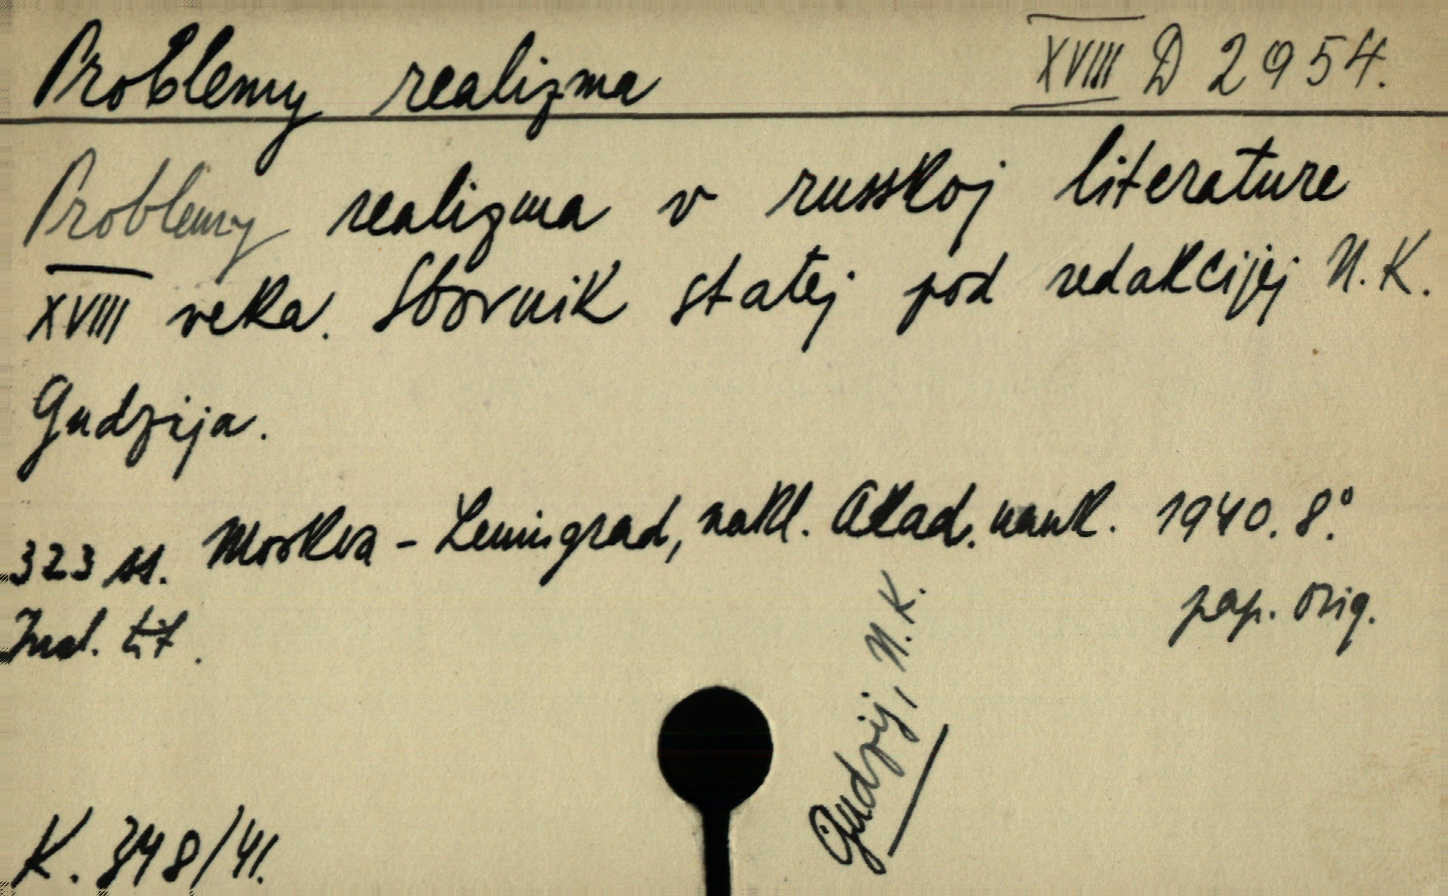 Problemy realizma XVIII D 2954.
Problemy realizma v russkoj literature
XVIII veka. Sbornik statej pod redakcijej N.K.
Gudzija.
323 ss. Moskva - Leningrad, nakl. Akad. nauk. 1940. 8°.
pap. orig.
tit.
Gudzij, N.K.
K. 348/41.